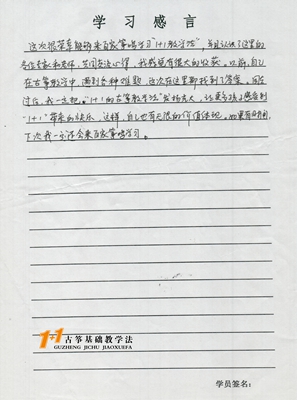 学习感言
这次很荣幸能够来百家筝鸣学习"1+1教学法",并且认识了这里的
各位专家和老师,共同交流心得,我感觉有很大的收获。以前,自己
在古筝教学中,遇到各种难题,这次在这里都找到了答案。回
过后,我一定把"1+1的古筝教学法"发扬光大,让更多孩子感受到
"1+1"带来的快乐,这样,自己也有无限的价值体现。如果有时间,
下次我一定还会来百家筝鸣学习。
1+1 古筝基础教学法
GUZHENG JICHU JIAOXUEFA
学员签名: